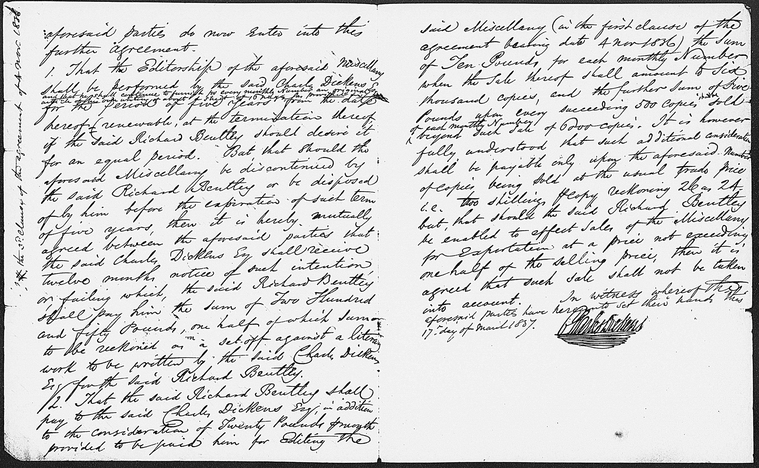 aforesaid parties do now enter into this
further agreement.
1. That the Editorship of the aforesaid Miscellany
shall be performed by the said Charles Dickens
for the period of five years from the date
hereof, renewable, at the termination thereof
if the said Richard Bentley should desire it
for an equal period. But that should the
aforesaid Miscellany be discontinued by
the said Richard Bentley or be disposed
of by him before the expiration of such term
of five years, then it is hereby mutually
agreed between the aforesaid parties that
the said Charles Dickens Esq shall receive
twelve months notice of such intention
or failing which, the said Richard Bentley
shall pay him the sum of Two Hundred
and fifty Pounds, one half of which sum
to be reckoned as a set off against a literary
work to be written by the said Charles Dickens
Esq for the said Richard Bentley.
2. That the said Richard Bentley shall
pay to the said Charles Dickens Esq, in addition
to the consideration of Twenty Pounds a month
provided to be paid him for Editing the
* the 3d clause of the agreement of 4 Nov. 1836
said Miscellany (in the first clause of the
agreement bearing date 4 Nov 1836) the sum
of Ten Pounds, for each monthly Number
when the Sale thereof shall amount to Six
thousand copies, and the further sum of Five
Pounds upon every succeeding 500 copies sold
of each monthly Number
beyond such Sale of 6000 copies. It is however
fully understood that such additional consideration
shall be payable only upon the aforesaid Number
of copies being sold at the usual trade price
i.e. two shillings P copy reckoning 26 as 24
but, that should the said Richard Bentley
be enabled to effect Sales of the Miscellany
for Exportation at a price not exceeding
one half of the selling price, then it is
agreed that such sale shall not be taken
into account. In witness whereof the
aforesaid parties have hereunto set their hands this
17th day of March 1837.
Charles Dickens